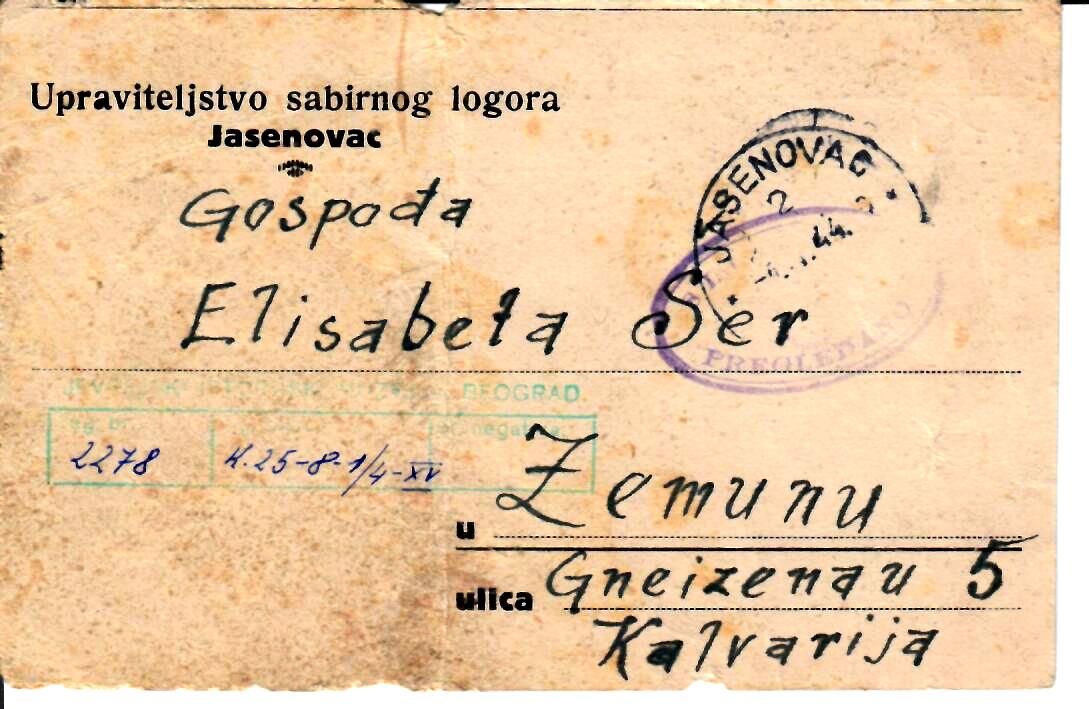 Upraviteljstvo sabirnog logora
Jasenovac
JASENOVAC
2
44.
Gospođa
Elisabeta Šer
PREGLEDANO
BEOGRAD
2278
K.25-8-1/4-XV
negativa
u Zemunu
ulica Gneizenau 5
Kalvarija